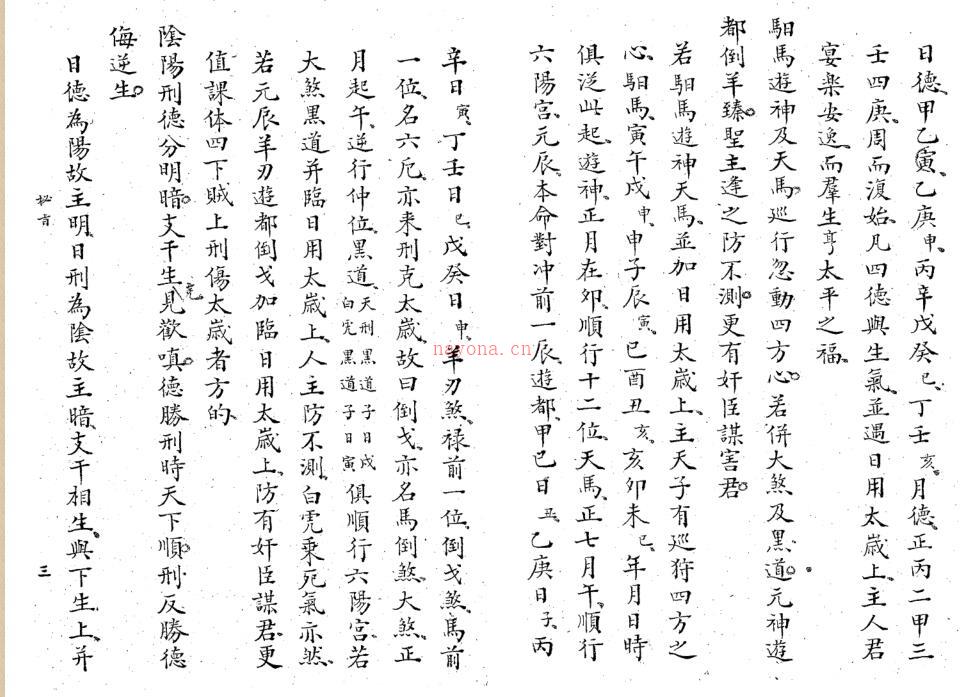 日德甲乙寅、乙庚申、丙辛戊癸巳、丁壬亥。月德、正丙二甲三
壬四庚、周而復始、凡四德與生氣並遇日用太歲上、主人君
宴樂安逸、而羣生亨太平之福。
馹馬遊神及天馬。巡行忽動四方心。若併大煞及黑道。元神遊
都倒羊臻。聖主逢之防不測。更有奸臣謀害君。
若馹馬遊神天馬、並加日用太歲上、主天子有巡狩四方之
心、馹馬、寅午戌申、申子辰寅、巳酉丑亥、亥卯未巳、年月日時
俱從此起、遊神、正月在卯、順行十二位、天馬、正七月午、順行
六陽宮、元辰、本命對冲前一辰、遊都、甲己日丑、乙庚日子、丙
辛日寅、丁壬日巳、戊癸日申、羊刃煞、禄前一位、倒戈煞、馬前
一位、名六厄、亦来刑克太歲、故曰倒戈、亦名馬倒煞、大煞、正
月起午、逆行仲位、黑道、天刑黑道子日戌白虎黑道子日寅俱順行六陽宮、若
大煞黑道并臨日用太歲上、人主防不測、白虎乘死氣亦然、
若元辰羊刃遊都倒戈加臨日用太歲上、防有奸臣謀君、更
值課体四下賊上刑傷太歲者方的、
陰陽刑德分明暗。支干生克見歡嗔。德勝刑時天下順。刑反勝德
侮逆生。
日德為陽故主明、日刑為陰故主暗、支干相生、與下生上、并
秘言
三
nayona.cn